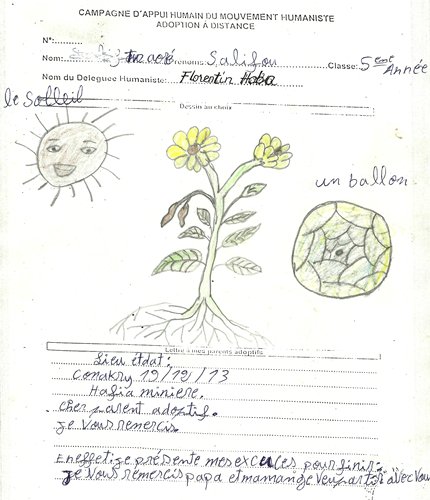 CAMPAGNE D'APPUI HUMAIN DU MOUVEMENT HUMANISTE
ADOPTION A DISTANCE
N°:
Nom: Prenoms: Salifou Classe: 5eme Année
Nom du Deleguée Humaniste: Florentin Haba
Dessin au choix
le Solleil
un ballon
Lettre à mes parents adoptifs
Lieu etdat:
Conakry 19/12/13
Hafia miniere.
cher parent adoptif.
je vous remercis.
Eneffetije présente mes excuces pour finir:
je vous remercis papa et maman